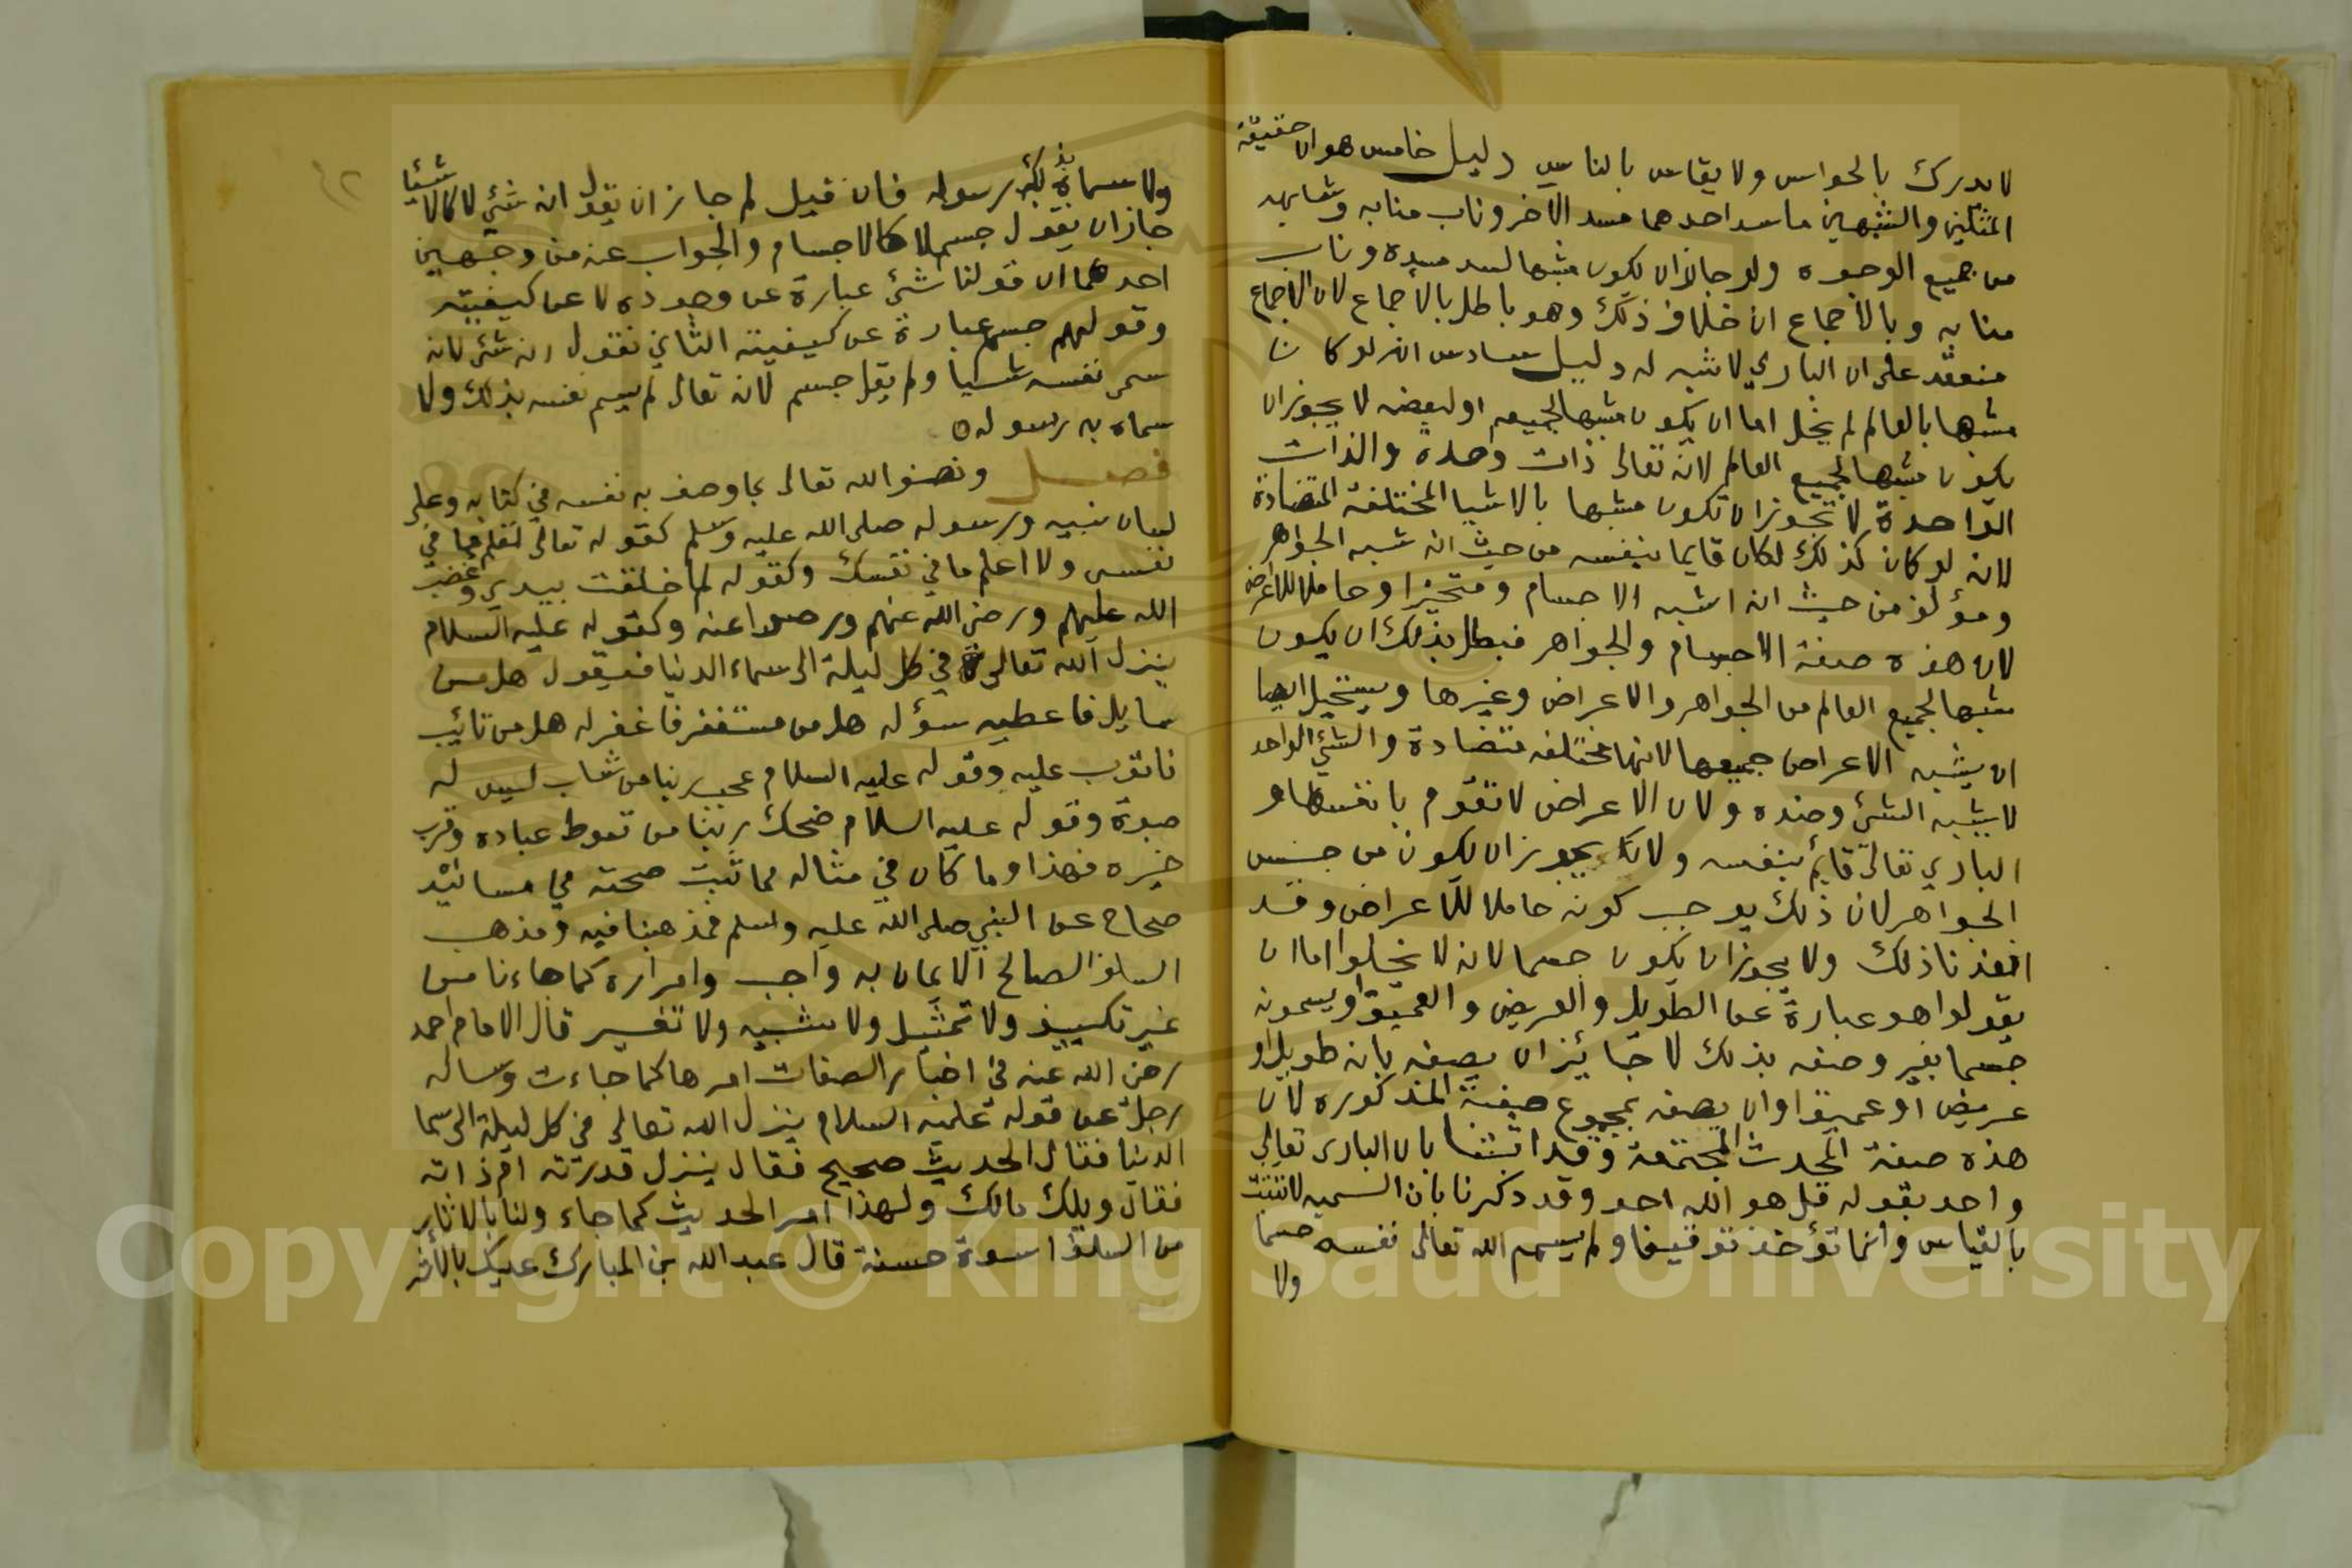 لا يدرك بالحواس ولا يقاس بالناس دليل خامس هو ان حقيقة
المثلين والشبهين ما سد احدهما مسد الاخر وناب منابه وشابهه
من جميع الوجوه ولو جاز ان يكون مشبها لسد مسده وناب
منابه وبالاجماع ان خلاف ذلك وهو باطل بالاجماع لان الاجماع
منعقد على ان الباري لا شبه له دليل سادس انه لو كان
مشبها بالعالم لم يخل اما ان يكون مشبها لجميعه او لبعضه لا يجوز ان
يكون مشبها لجميع العالم لانه تعالى ذات وحدة والذات
الواحدة لا تجوز ان تكون مشبها بالاشيا المختلفة المتضادة
لانه لو كان كذلك لكان قايما بنفسه من حيث انه شبه الجواهر
ومؤلف من حيث انه اشبه الاجسام ومتحيزا وحاملا للاعراض
لان هذه صفة الاجسام والجواهر فبطل بذلك ان يكون
مشبها لجميع العالم من الجواهر والاعراض وغيرها ويستحيل ايضا
ان يشبه الاعراض جميعها لانها مختلفه متضادة والشئ الواحد
لا يشبه الشئ وضده ولان الاعراض لا تقوم بانفسها و
الباري تعالى قايم بنفسه ولا يجوز ان يكون من جنس
الجواهر لان ذلك يوجب كونه حاملا للاعراض وقد
افسدنا ذلك ولا يجوز ان يكون جسما لانه لا يخلوا اما ان
يقولوا هو عبارة عن الطويل والعريض والعميق او يسمونه
جسما بغير وصفه بذلك لا جائز ان يصفه بانه طويل او
عريض او عميقا وان يصفه بمجموع صفة المذكوره لان
هذه صفة المحدث المجتمعة وقد اثبتنا بان البارى تعالى
واحد بقوله قل هو الله احد وقد ذكرنا بان التسميه لا تثبت
بالقياس وانما تؤخذ توقيفا ولم يسم الله تعالى نفسه جسما
ولا
٤٢
ولا سماه بذلك رسوله فان قيل لم جاز ان يقول انه شئ لا كالاشيا
جاز ان يقول جسم لا كالاجسام والجواب عنه من وجهين
احدهما ان قولنا شئ عبارة عن وجوده لا عن كيفيته
وقولهم جسم عبارة عن كيفيته الثاني نقول انه شئ لانه
سمى نفسه شيا ولم يقل جسم لانه تعالى لم يسم نفسه بذلك ولا
سماه به رسوله ه
فصل ونصف الله تعالى بما وصف به نفسه في كتابه وعلى
لسان نبيه ورسوله صلى الله عليه وسلم كقوله تعالى تعلم ما في
نفسي ولا اعلم ما في نفسك وكقوله لما خلقت بيدي وغضب
الله عليهم ورضي الله عنهم ورضوا عنه وكقوله عليه السلام
ينزل الله تعالى في كل ليلة الى سماء الدنيا فيقول هل من
سايل فاعطيه سؤله هل من مستغفر فاغفر له هل من تائب
فاتوب عليه وقوله عليه السلام عجب ربنا من شاب ليس له
صبوة وقوله عليه السلام ضحك ربنا من قنوط عباده وقرب
خيره فهذا وما كان في مثاله مما ثبت صحته في مسانيد
صحاح عن النبي صلى الله عليه وسلم فمذهبنا فيه ومذهب
السلف الصالح الايمان به واجب وامراره كما جاءنا من
غير تكييف ولا تمثيل ولا تشبيه ولا تفسير قال الامام احمد
رضي الله عنه في اخبار الصفات امرها كما جاءت وساله
رجل عن قوله عليه السلام ينزل الله تعالى في كل ليلة الى سما
الدنيا فقال الحديث صحيح فقال ينزل قدرته ام ذاته
فقال ويلك مالك ولهذا امر الحديث كما جاء ولنا بالاثار
من السلف اسوة حسنة قال عبد الله بن المبارك عليك بالأثر
Copyright © King Saud University